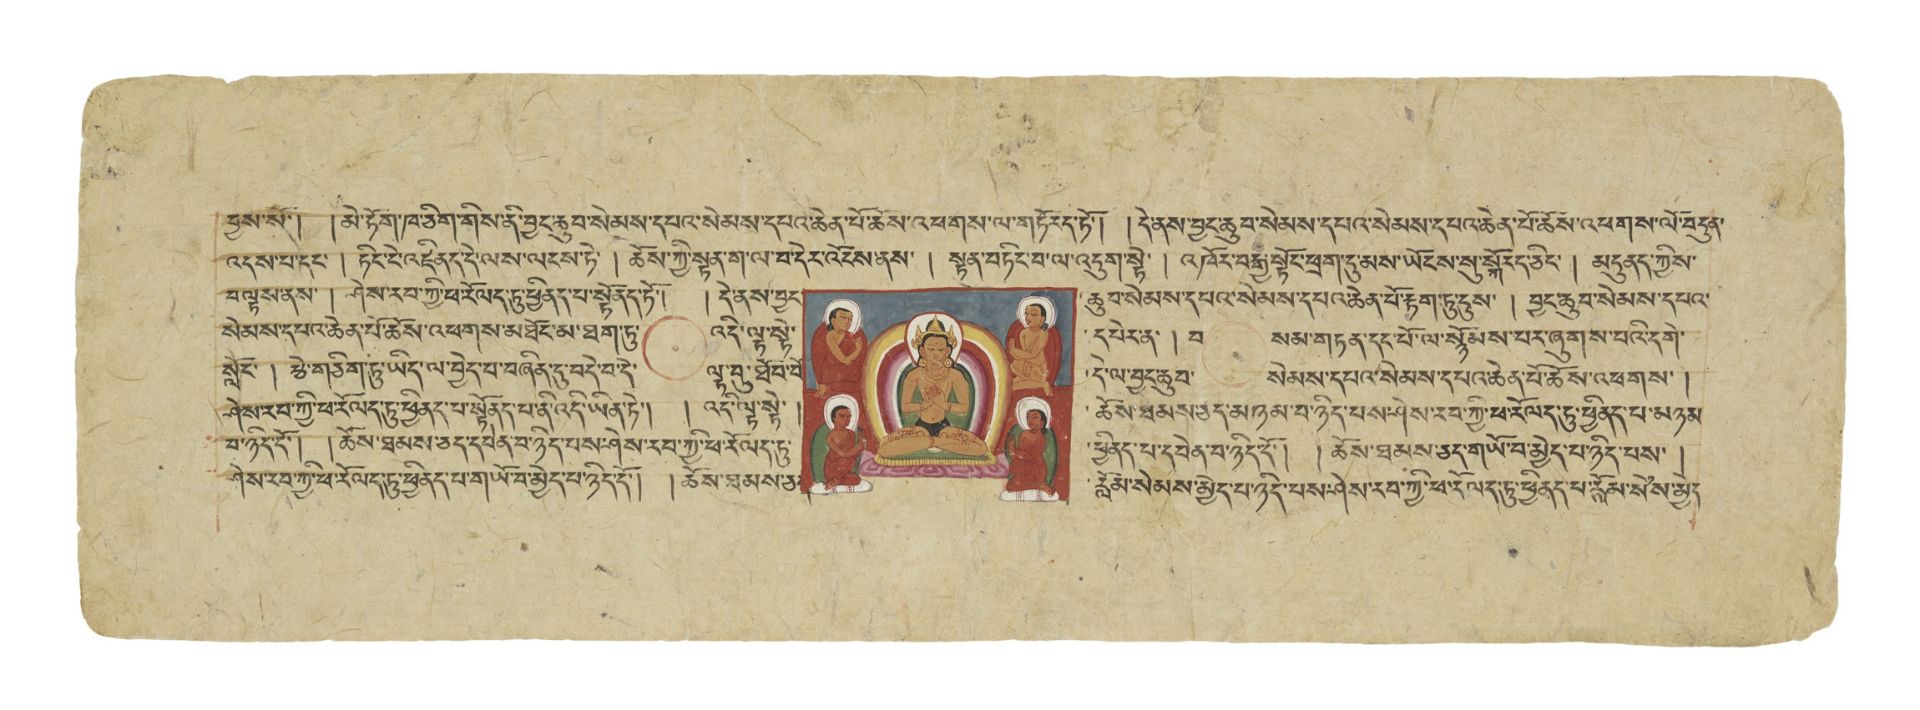 བྱས་སོ་། །མེ་ཏོག་ཁ་ཅིག་གིས་ནི་བྱང་ཆུབ་སེམས་དཔའ་སེམས་དཔའ་ཆེན་པོ་ཆོས་འཕགས་ལ་གཏོརད་ཏེ་། །དེ་ནས་བྱང་ཆུབ་སེམས་དཔའ་སེམས་དཔའ་ཆེན་པོ་ཆོས་འཕགས་ལོ་བདུན་
འདས་པ་དང་། ཏིང་ངེ་འཛིནད་དེ་ལས་ལངས་ཏེ་། ཆོས་ཀྱི་སྟན་ག་ལ་བ་དེར་འོངས་ནས་། སྟན་བཏིང་བ་ལ་འདུག་སྟེ་། འཁོར་བརྒྱ་སྟོང་ཕྲག་དུ་མས་ཡོངས་སུ་སྐོརད་ཅིང་། མདུནད་ཀྱིས་
བལྟས་ནས་། ཤེས་རབ་ཀྱི་ཕ་རོལད་ཏུ་ཕྱིནད་པ་སྟོནོད་ཏོ་། །དེ་ནས་བྱང་ ཆུབ་སེམས་དཔའ་སེམས་དཔའ་ཆེན་པོ་རྟག་ཏུ་ངུས་། བྱང་ཆུབ་སེམས་དཔའ་
སེམས་དཔའ་ཆེན་པོ་ཆོས་འཕགས་མཐོང་མ་ཐག་ཏུ་ འདི་ལྟ་སྟེ་ དཔེར་ན་། བ སམ་གཏན་དང་པོ་ལ་སྙོམས་པར་ཞུགས་པའི་དགེ་
སློང་། རྩེ་གཅིག་ཏུ་ཡིད་ལ་བྱེད་པ་བཞིནད་དུ་བདེ་བ་དེ་ ལྟ་བུ་ཐོབ་བོ དེ་ལ་བྱང་ཆུབ་ སེམས་དཔའ་སེམས་དཔའ་ཆེན་པོ་ཆོས་འཕགས་།
ཤེས་རབ་ཀྱི་ཕ་རོལད་ཏུ་ཕྱིནད་པ་སྟོནད་པ་ནི་འདི་ཡིན་ཏེ་། །འདི་ལྟ་སྟེ་། ཆོས་ཐམས་ཅད་མ་ཉམ་བ་ཉིད་པས་ཤེས་རབ་ཀྱི་ཕ་རོལད་ཏུ་ཕྱིནད་པ་མ་ཉམ
བ་ཉིད་དོ་། །ཆོས་ཐམས་ཅད་དབེན་བ་ཉིད་པས་ཤེས་རབ་ཀྱི་ཕ་རོལད་ཏུ་ ཕྱིནད་པ་དབེན་བ་ཉིད་དོ་། །ཆོས་ཐམས་ཅད་གཡོ་བ་མྱེད་པ་ཉིད་པས་།
ཤེས་རབ་ཀྱི་ཕ་རོལད་ཏུ་ཕྱིནད་པ་གཡོ་བ་མྱེད་པ་ཉིད་དོ་། །ཆོས་ཐམས་ཅད རློམ་སེམས་མྱེད་པ་ཉིད་པས་ཤེས་རབ་ཀྱི་ཕ་རོལད་ཏུ་ཕྱིནད་པ་རློམ་སེམས་མྱེད